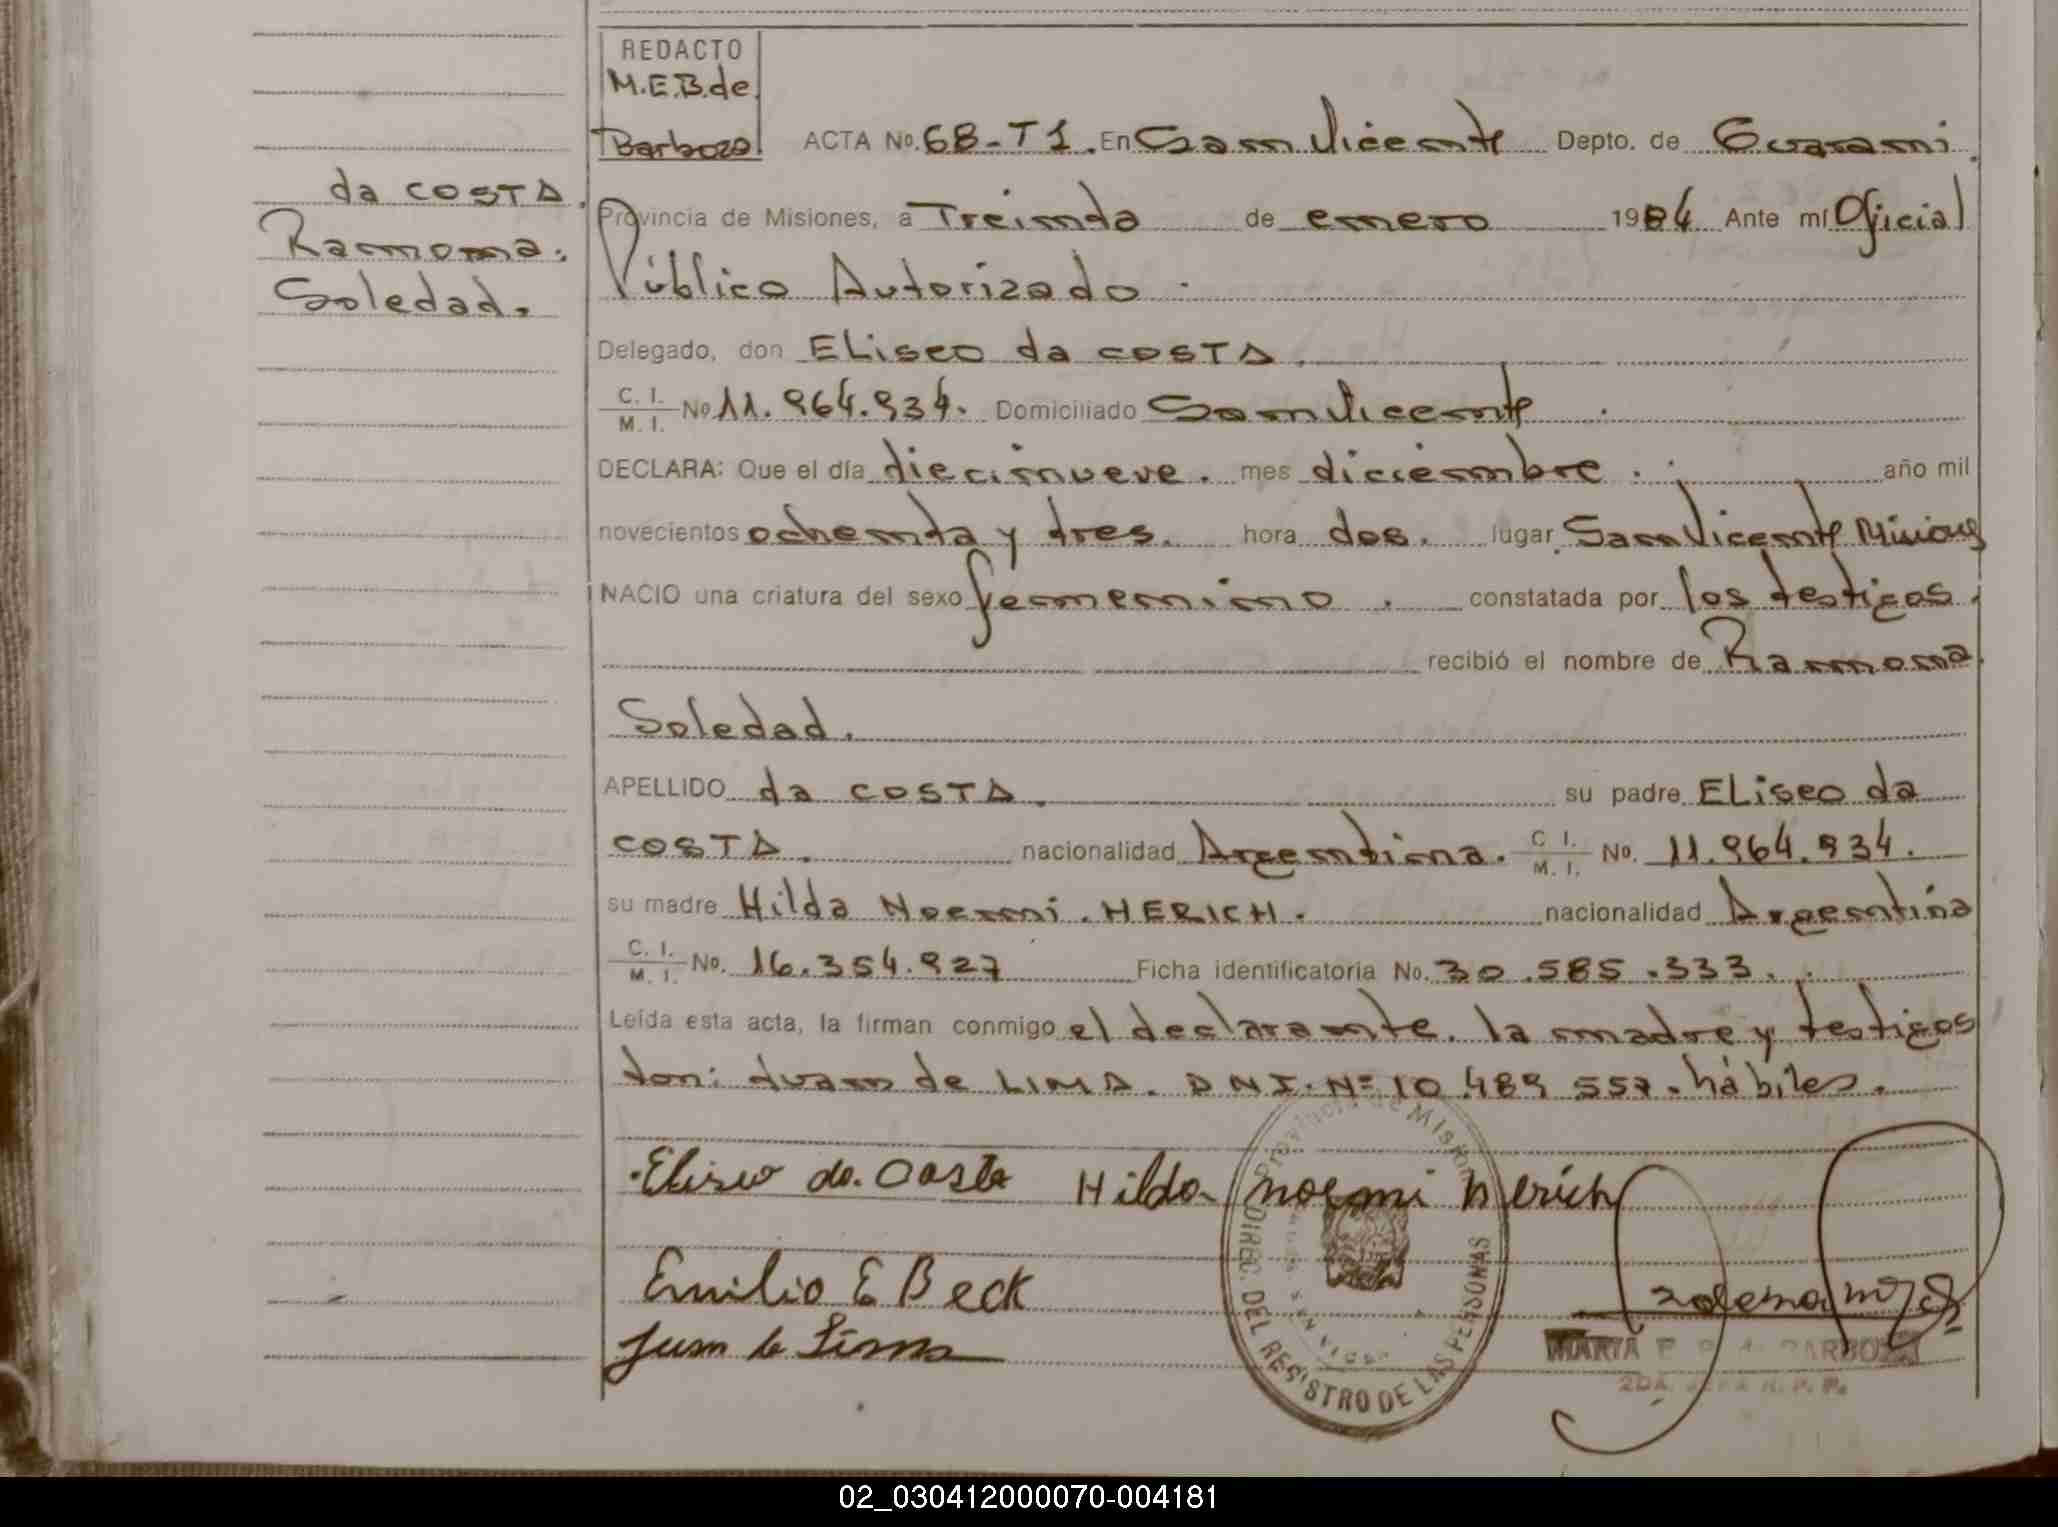 REDACTO
M.E.B.de
Barboza
ACTA No. 68-T1. En San Vicente Depto. de Guarani.
da COSTA.
Ramona.
Soledad.
Provincia de Misiones, a Treinta de enero 1984 Ante mí Oficial
Público Autorizado.
Delegado, don ELiseo da COSTA.
C. I.
M. I. No 11.964.934. Domiciliado San Vicente.
DECLARA: Que el día diecinueve. mes diciembre. año mil
novecientos ochenta y tres. hora dos. lugar San Vicente Misiones
NACIO una criatura del sexo femenino. constatada por los testigos.
recibió el nombre de Ramona
Soledad.
APELLIDO da COSTA. su padre ELiseo da
COSTA. nacionalidad Argentina. C I.
M. I. No. 11.964.934.
su madre Hilda Noemi. HERICH. nacionalidad Argentina
C. I.
M. I. No. 16.354.927 Ficha identificatoria No. 30.585.333.
Leída esta acta, la firman conmigo el declarante. la madre y testigos
don: Juan de LIMA. DNI. Nº 10.489 557. hábiles.
Eliseo da. Costa Hilda noemi herich
Emilio E Beck
Juan de Lima
Provincia de Misiones
DIREC. DEL REGISTRO DE LAS PERSONAS
MARIA E. BARBOZA
2DA. JEFA R. P. P.
02_030412000070-004181